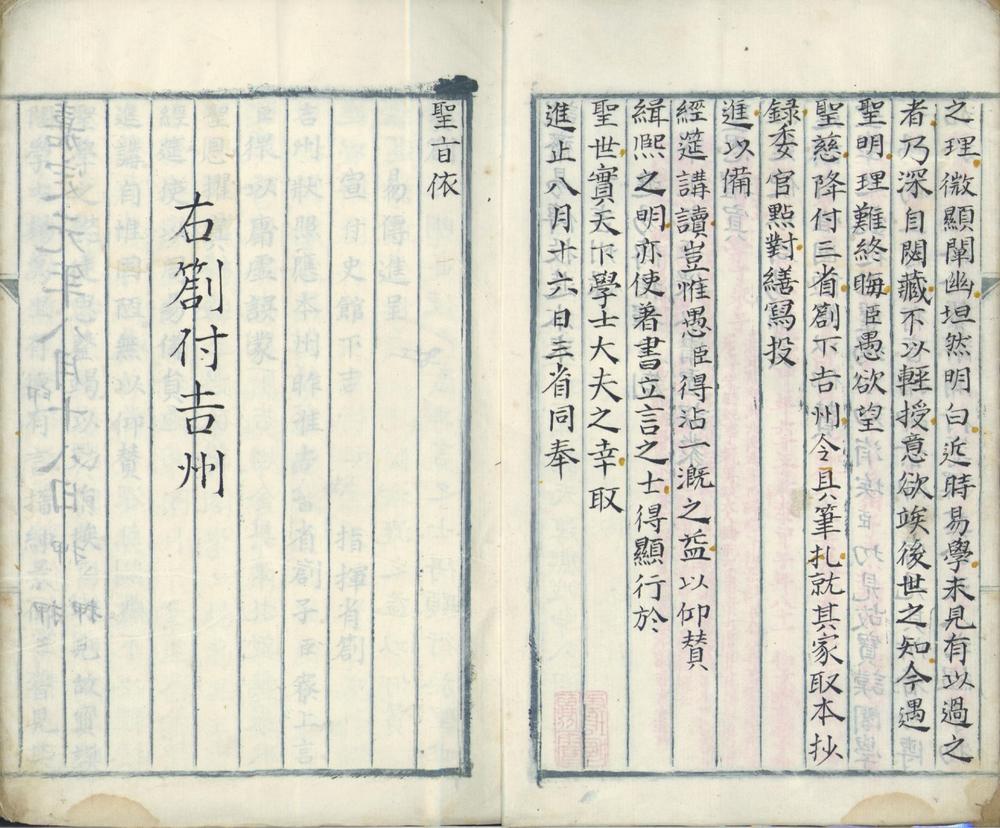 之理微顯闡幽坦然明白近時易學未見有以過之
者乃深自閟藏不以輕授意欲竢後世之知今遇
聖明理難終晦臣愚欲望
聖慈降付三省劄下吉州令具筆札就其家取本抄
録委官點對繕寫投
進以備
經筵講讀豈惟愚臣得沾一溉之益以仰賛
緝熙之明亦使著書立言之士得顯行於
聖世實天下學士大夫之幸取
進止八月十六日三省同奉
聖旨依
右劄付吉州